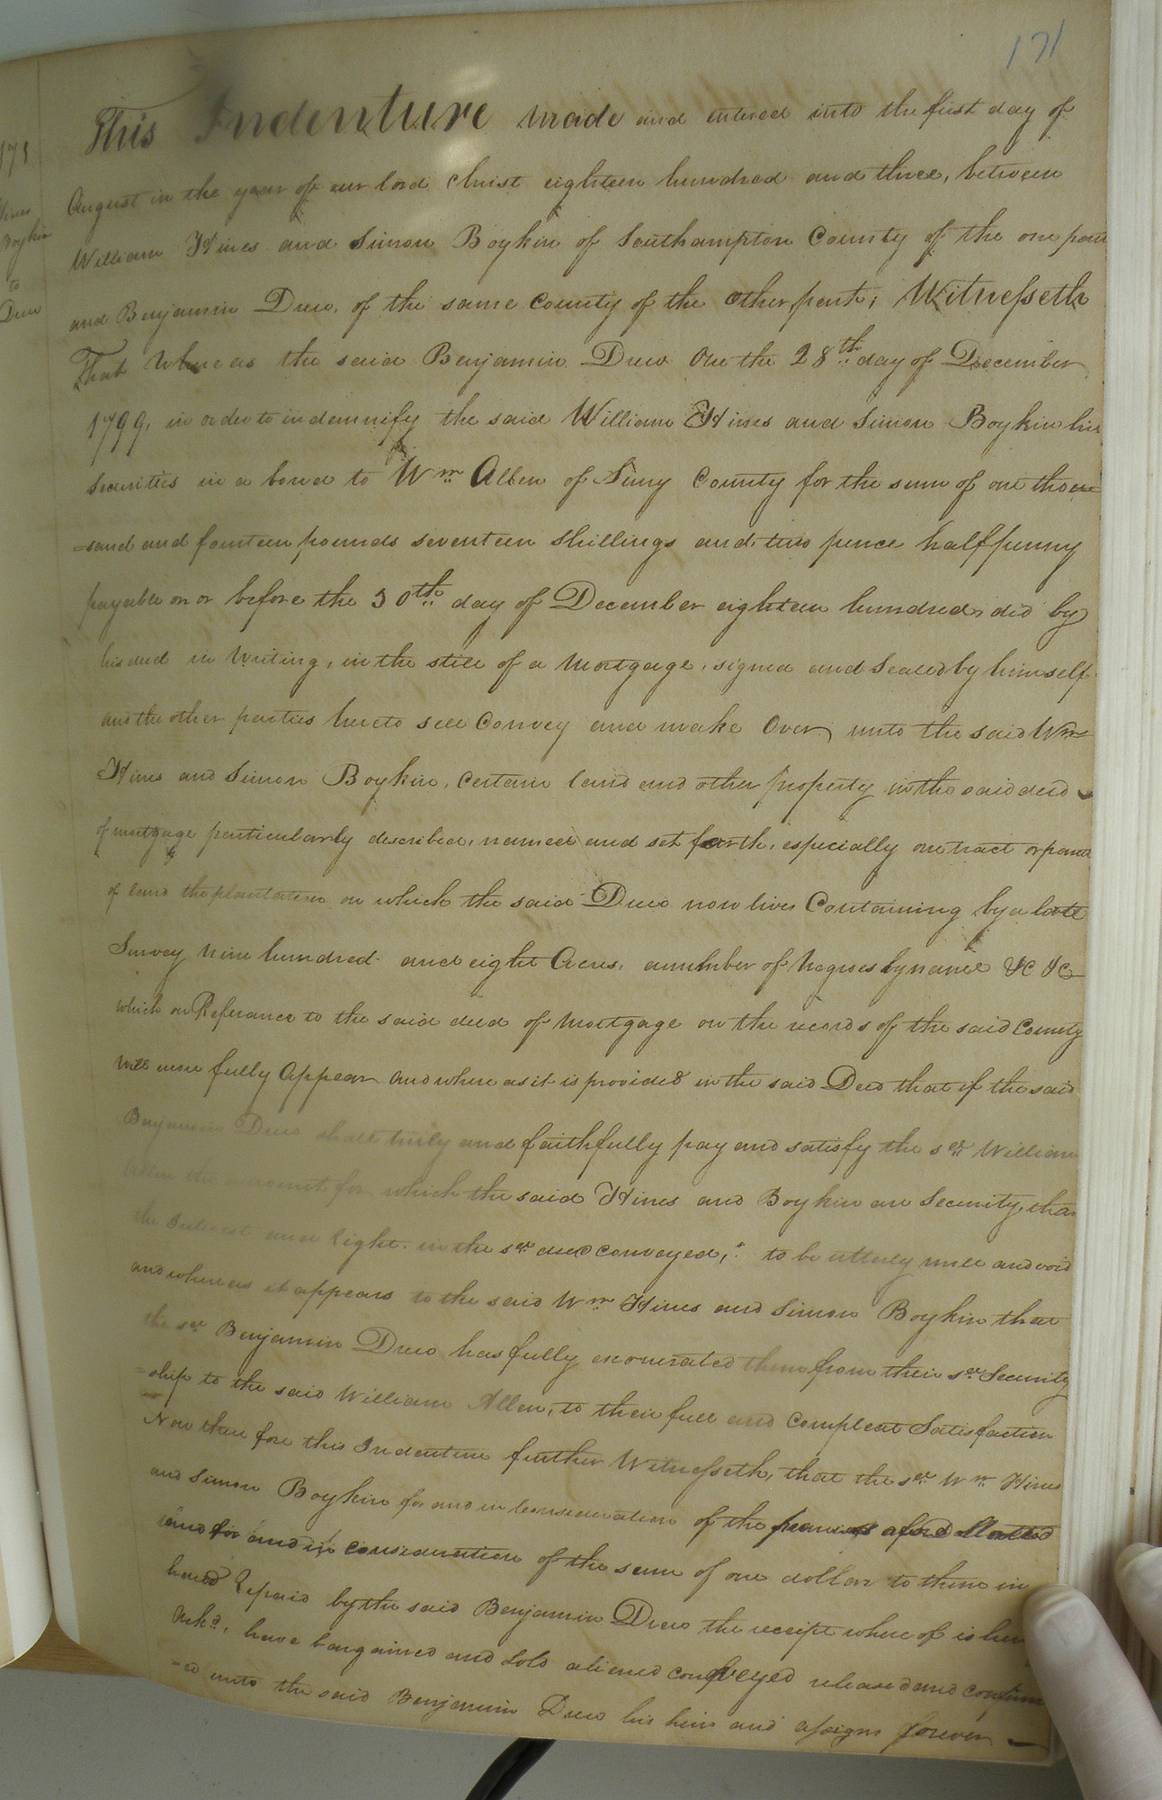 171
This Indenture made and entered into the first day of
August in the year of our lord Christ eighteen hundred and three, between
William Hines and Simon Boykin of Southampton County of the one part
and Benjamin Drew, of the same County of the other part; Witnesseth
That Whereas the said Benjamin Drew On the 28th day of December
1799, in order to indemnify the said William Hines and Simon Boykin his
Securities in a bond to Wm Allen of Surry County for the sum of one thou
=sand and fourteen pounds seventeen Shillings and two pence halfpenny
payable on or before the 30th day of December eighteen hundred, did by
his deed in Writing, in the stile of a Mortgage, signed and Sealed by himself
and the other parties hereto sell Convey and make Over unto the said Wm
Hines and Simon Boykin, Certain land and other property in the said deed
of mortgage particularly described, named and set forth, especially one tract or parcel
of land the plantation on which the said Drew now lives Containing by a late
Survey nine hundred and eight Acres, a number of Negroes by name &C &C
which on Referance to the said deed of Mortgage on the records of the said County
will more fully Appear and where as it is provided in the said Deed that if the said
Benjamin Drew shall truly and faithfully pay and satisfy the sd William
Allen the amount for which the said Hines and Boykin are Security, that
the Interest and right in the sd deed Conveyed, to be utterly null and void
and whereas it appears to the said Wm Hines and Simon Boykin that
the sd Benjamin Drew has fully exonerated them from their sd Security
=ship to the said William Allen, to their full and Compleat Satisfaction
Now there fore this Indenture further Witnesseth, that the sd Wm Hines
and Simon Boykin for and in Consideration of the premises aforesd Stated
and for and in consideration of the sum of one dollar to them in
hand paid by the said Benjamin Drew the receipt where of is
Ackd, have bargained and Sold aliened conveyed released and confirm
=ed unto the said Benjamin Drew his heirs and assigns forever
171
Boykin
to
Drew